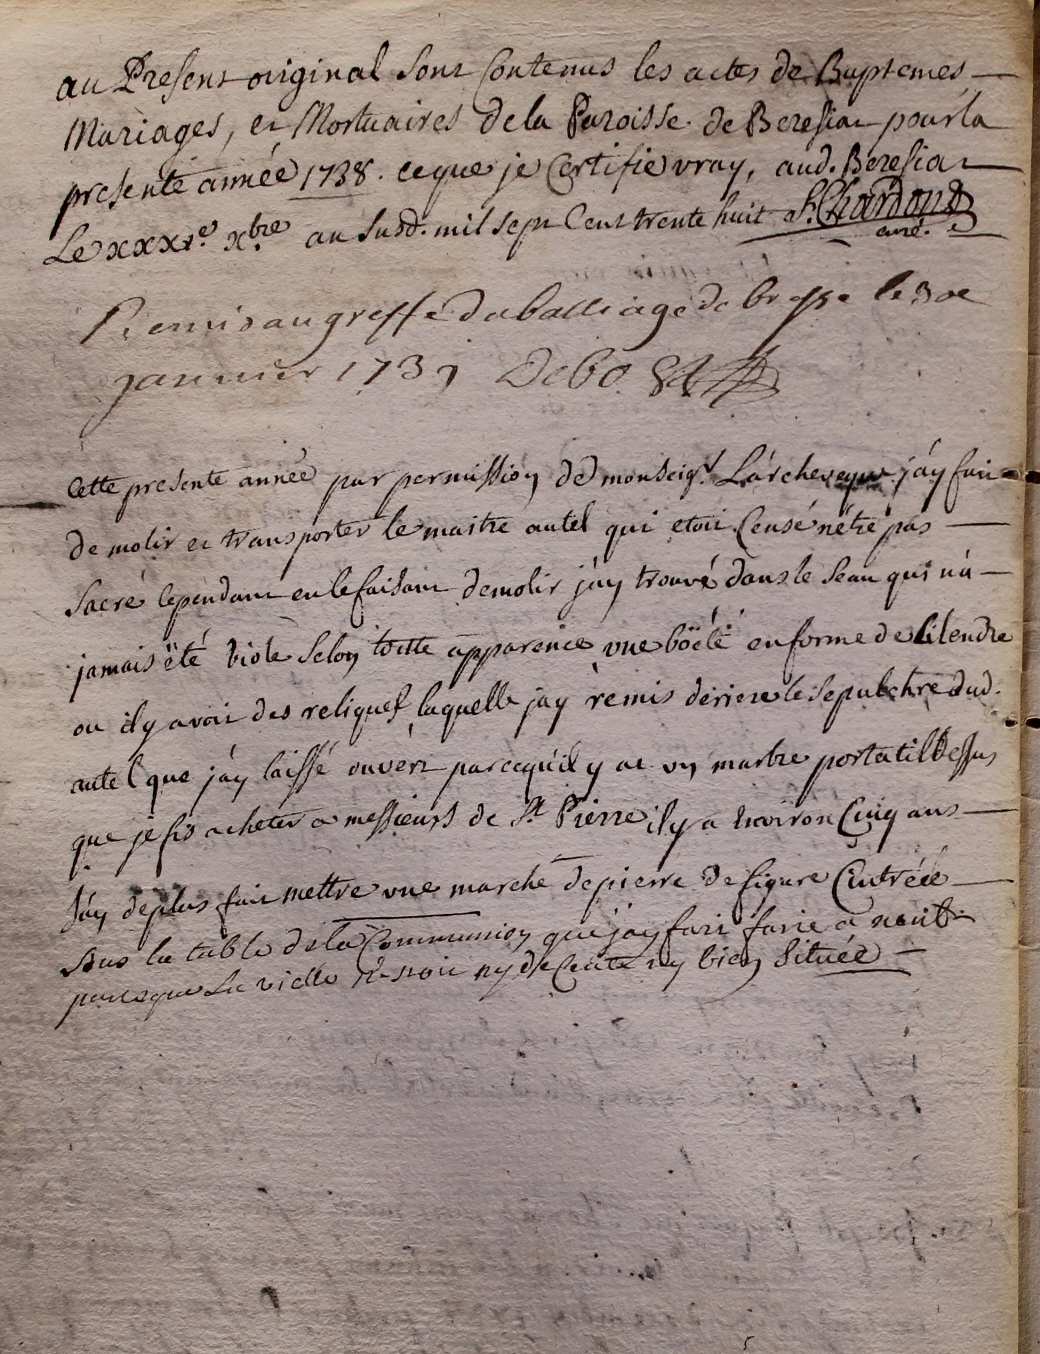 au Present original sont Contenus les actes de Baptemes
Mariages, et Mortuaires de la Paroisse de Beresiat pour la
presente année 1738. ce que je Certifie vray, aud. Beresiat
Le xxxie xbre an susd. mil sept Cent trente huit
curé.
Remis au greffe du balliage de bresse le 30e
janvier 1739
Cette presente année par permission de monseigr. L'archeveque j'ay fait
demolir et transporter le maitre autel qui etoit Censé n'etre pas
Sacré cependant en le faisant demolir j'ay trouvé dans le seau qui n'a
jamais été violé selon toutte apparence une böete en forme de Cilendre
ou il y avoit des reliques laquelle jay remis deriere le sepulchre dud.
autel que j'ay laissé ouvert parcequ'il y at un marbre portatil dessus
que je fis acheter a messieurs de St. Pierre il y a environ Cinq ans
J'ay de plus fait mettre une marche de pierre de figure Cintrée
sous la table de la Communion que j'ay fait faire a neuf
parceque la vielle n'etoit ny decente ny bien située